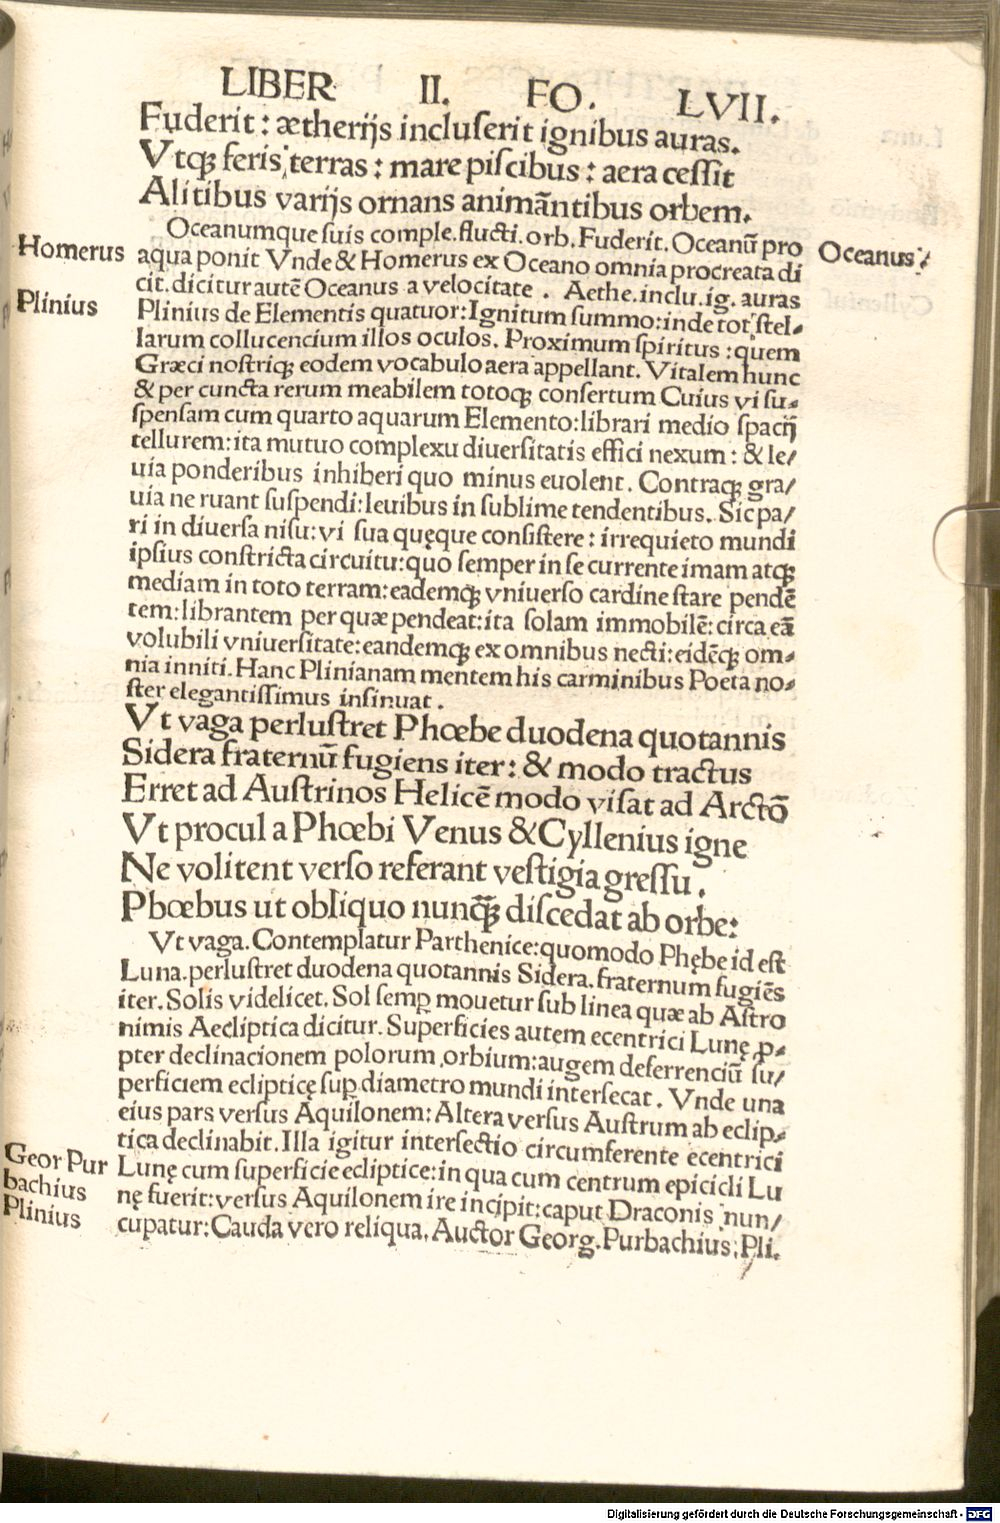 LIBER II. FO. LVII.
Fuderit : ætherijs incluserit ignibus auras.
Vtqꝫ feris, terras : mare piscibus : aera cessit
Alitibus varijs ornans animãntibus orbem.
Oceanumque suis comple. flucti. orb. Fuderit. Oceanũ pro
Oceanus
Homerus
aqua ponit Vnde & Homerus ex Oceano omnia procreata di
cit. dicitur autẽ Oceanus a velocitate . Aethe. inclu. ig. auras
Plinius
Plinius de Elementis quatuor: Ignitum summo: inde tot stel-
larum collucencium illos oculos. Proximum spiritus : quem
Græci nostriqꝫ eodem vocabulo aera appellant. Vitalem hunc
& per cuncta rerum meabilem totoqꝫ consertum Cuius vi su-
spensam cum quarto aquarum Elemento: librari medio spacij
tellurem: ita mutuo complexu diuersitatis effici nexum : & le/
uia ponderibus inhiberi quo minus euolent. Contraqꝫ gra/
uia ne ruant suspendi: leuibus in sublime tendentibus. Sic pa/
ri in diuersa nisu: vi sua quęque consistere : irrequieto mundi
ipsius constricta circuitu: quo semper in se currente imam atqꝫ
mediam in toto terram: eademqꝫ vniuerso cardine stare pendẽ
tem: librantem per quæ pendeat: ita solam immobilẽ: circa eã
volubili vniuersitate: eandemqꝫ ex omnibus necti: eidẽqꝫ om-
nia inniti. Hanc Plinianam mentem his carminibus Poeta no-
ster elegantissimus insinuat .
Vt vaga perlustret Phœbe duodena quotannis
Sidera fraternũ fugiens iter : & modo tractus
Erret ad Austrinos Helicẽ modo visat ad Arctõ
Vt procul a Phœbi Venus & Cyllenius igne
Ne volitent verso referant vestigia gressu .
Phœbus ut obliquo nunq̃ꝫ discedat ab orbe:
Vt vaga. Contemplatur Parthenice: quomodo Phębe id est
Luna. perlustret duodena quotannis Sidera. fraternum fugiẽs
iter. Solis videlicet. Sol semꝑ mouetur sub linea quæ ab Astro
nimis Aecliptica dicitur. Superficies autem ecentrici Lunę ꝓ-
pter declinacionem polorum orbium: augem deferrenciũ su/
perficiem eclipticę suꝑ diametro mundi intersecat. Vnde una
eius pars versus Aquilonem: Altera versus Austrum ab eclip-
tica declinabit. Illa igitur intersectio circumferente ecentrici
Geor Pur
bachius
Lunę cum superficie ecliptice: in qua cum centrum epicicli Lu
nę fuerit: versus Aquilonem ire incipit: caput Draconis nun/
Plinius
cupatur: Cauda vero reliqua. Auctor Georg. Purbachius; Pli.
Digitalisierung gefördert durch die Deutsche Forschungsgemeinschaft - DFG